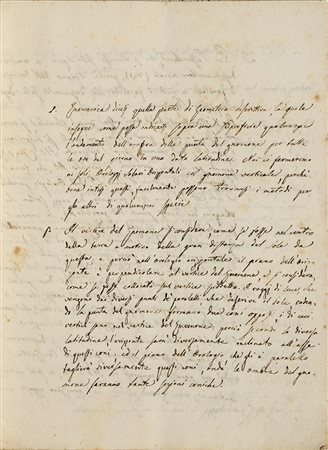 1. Gnomonica dicesi quella parte di Geometria descrittiva, la quale
insegna come possa indicarsi sopra una superficie qualunque
l'andamento dell'ombra della punta del gnomone per tutte
le ore del giorno in una data latitudine. Noi ci fermeremo
ai soli Orologj solari orizontali col gnomone verticale, perchè
bene intesi questi facilmente possono trovarsi i metodi per
gli altri di qualunque specie
2. Il vertice del Gnomone si considera come se fosse nel centro
della terra a motivo della gran distanza del Sole da
questa, e perciò nell'orologio orizontale il piano dell'oriz
zonte è perpendicolare al vertice del Gnomone, e si considera
come se fosse collocato sul vertice I raggi di luce che
vengono dai diversi punti de' paralleli che descrive il sole caden
do in punta del gnomone formano due coni opposti, i di cui
vertici sono nel vertice del Gnomone; perciò secondo la diversa
latitudine, l'orizonte sarà diversamente inclinato all'asse
di questi coni, ed il piano dell'Orologio che gli è parallelo
taglierà diversamente questi coni, onde le ombre del gno
mone saranno tante sezioni coniche.